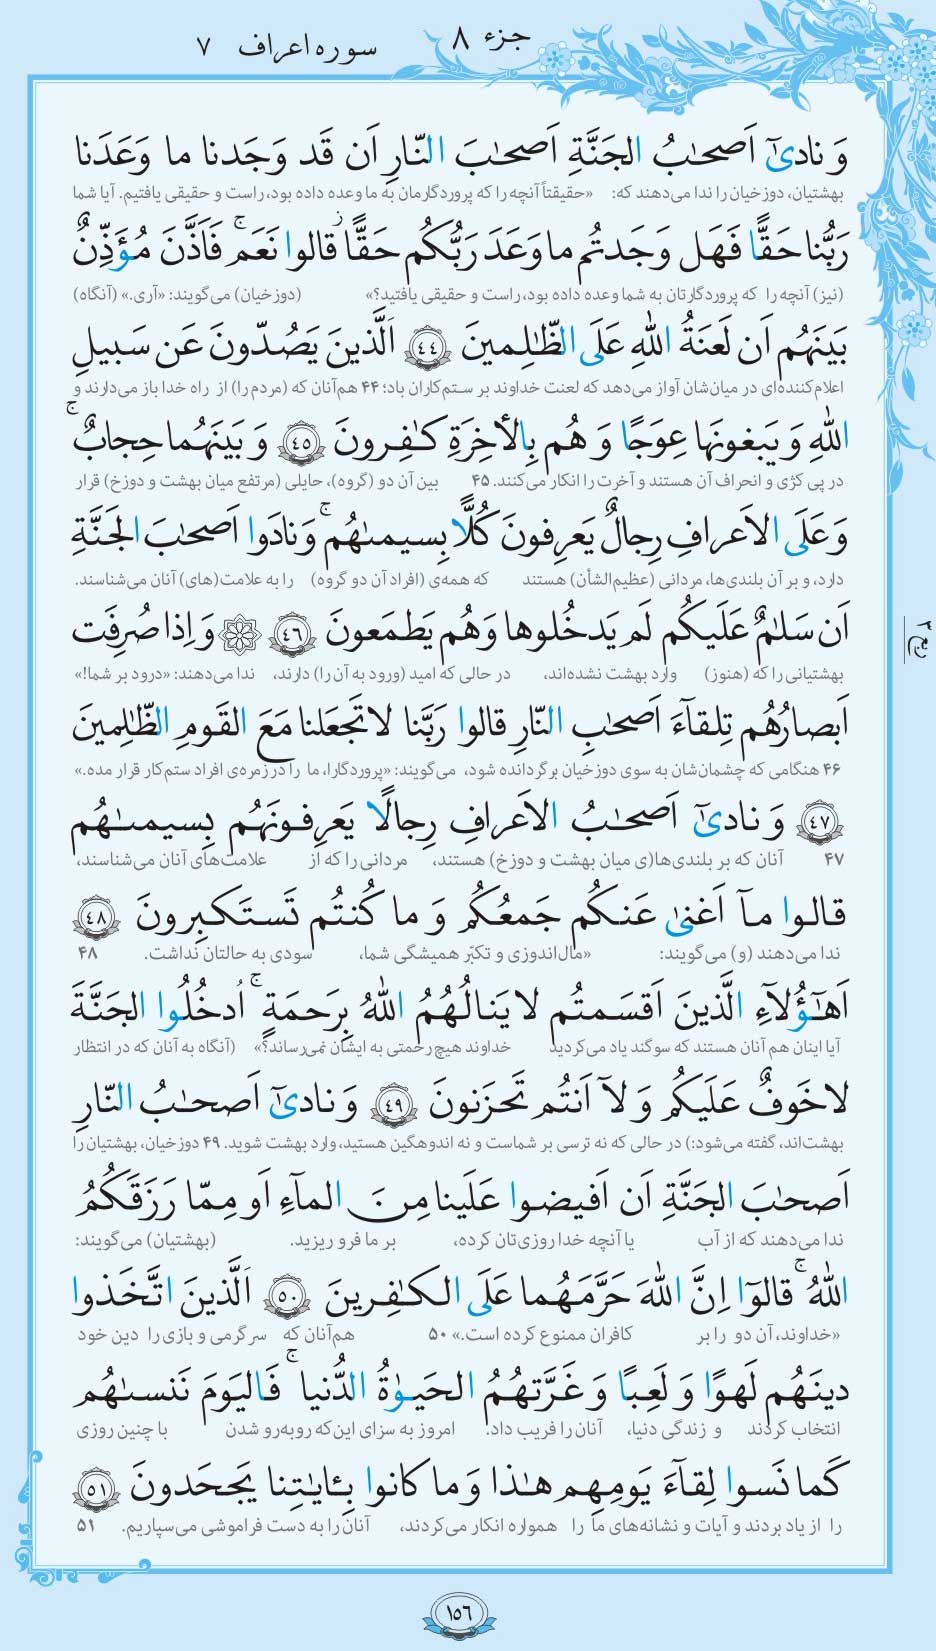 جزء ۸
سوره اعراف ۷
وَ نادىٰٓ اَصحـٰبُ الجَنَّةِ اَصحـٰبَ النّارِ اَن قَد وَجَدنا ما وَعَدَنا
بهشتیان، دوزخیان را ندا می‌دهند که: «حقیقتاً آنچه را که پروردگارمان به ما وعده داده بود، راست و حقیقی یافتیم. آیا شما
رَبُّنا حَقًّا فَهَل وَجَدتُم ما وَعَدَ رَبُّكُم حَقًّا ۖ قالوا نَعَم ۚ فَاَذَّنَ مُؤَذِّنٌ
(نیز) آنچه را که پروردگارتان به شما وعده داده بود، راست و حقیقی یافتید؟» (دوزخیان) می‌گویند: «آری.» (آنگاه)
بَينَهُم اَن لَعنَةُ اللهِ عَلَى الظّـٰلِمينَ ﴿٤٤﴾ اَلَّذينَ يَصُدّونَ عَن سَبيلِ
اعلام‌کننده‌ای در میان‌شان آواز می‌دهد که لعنت خداوند بر ستم‌کاران باد؛ ۴۴ هم‌آنان که (مردم را) از راه خدا باز می‌دارند و
اللهِ وَ يَبغونَها عِوَجًا وَ هُم بِالـٔاخِرَةِ كـٰفِرونَ ﴿٤٥﴾ وَ بَينَهُما حِجابٌ ۚ
در پی کژی و انحراف آن هستند و آخرت را انکار می‌کنند. ۴۵ بین آن دو (گروه)، حایلی (مرتفع میان بهشت و دوزخ) قرار
وَ عَلَى الاَعرافِ رِجالٌ يَعرِفونَ كُلًّا بِسيمىٰهُم ۚ وَ نادَوا اَصحـٰبَ الجَنَّةِ
دارد، و بر آن بلندی‌ها، مردانی (عظیم‌الشأن) هستند که همه‌ی (افراد آن دو گروه) را به علامت(های) آنان می‌شناسند.
اَن سَلـٰمٌ عَلَيكُم لَم يَدخُلوها وَ هُم يَطمَعونَ ﴿٤٦﴾ ۞ وَ اِذا صُرِفَت
بهشتیانی را که (هنوز) وارد بهشت نشده‌اند، در حالی که امید (ورود به آن را) دارند، ندا می‌دهند: «درود بر شما!»
اَبصارُهُم تِلقآءَ اَصحـٰبِ النّارِ قالوا رَبَّنا لا تَجعَلنا مَعَ القَومِ الظّـٰلِمينَ
۴۶ هنگامی که چشمان‌شان به سوی دوزخیان برگردانده شود، می‌گویند: «پروردگارا، ما را در زمره‌ی افراد ستم‌کار قرار مده.»
﴿٤٧﴾ وَ نادىٰٓ اَصحـٰبُ الاَعرافِ رِجالًا يَعرِفونَهُم بِسيمىٰهُم
۴۷ آنان که بر بلندی‌ها(ی میان بهشت و دوزخ) هستند، مردانی را که از علامت‌های آنان می‌شناسند،
قالوا مآ اَغنىٰ عَنكُم جَمعُكُم وَ ما كُنتُم تَستَكبِرونَ ﴿٤٨﴾
ندا می‌دهند (و) می‌گویند: «مال‌اندوزی و تکبّر همیشگی شما، سودی به حالتان نداشت. ۴۸
اَهـٰٓؤُلآءِ الَّذينَ اَقسَمتُم لا يَنالُهُمُ اللهُ بِرَحمَةٍ ۚ اُدخُلُوا الجَنَّةَ
آیا اینان هم آنان هستند که سوگند یاد می‌کردید خداوند هیچ رحمتی به ایشان نمی‌رساند؟» (آنگاه به آنان که در انتظار
لا خَوفٌ عَلَيكُم وَ لآ اَنتُم تَحزَنونَ ﴿٤٩﴾ وَ نادىٰٓ اَصحـٰبُ النّارِ
بهشت‌اند، گفته می‌شود:) در حالی که نه ترسی بر شماست و نه اندوهگین هستید، وارد بهشت شوید. ۴۹ دوزخیان، بهشتیان را
اَصحـٰبَ الجَنَّةِ اَن اَفيضوا عَلَينا مِنَ المآءِ اَو مِمّا رَزَقَكُمُ
ندا می‌دهند که از آب یا آنچه خدا روزی‌تان کرده، بر ما فرو ریزید. (بهشتیان) می‌گویند:
اللهُ ۚ قالوٓا اِنَّ اللهَ حَرَّمَهُما عَلَى الكـٰفِرينَ ﴿٥٠﴾ اَلَّذينَ اتَّخَذوا
«خداوند، آن دو را بر کافران ممنوع کرده است.» ۵۰ هم‌آنان که سرگرمی و بازی را دین خود
دينَهُم لَهوًا وَ لَعِبًا وَ غَرَّتهُمُ الحَيوٰةُ الدُّنيا ۚ فَاليَومَ نَنسىٰهُم
انتخاب کردند و زندگی دنیا، آنان را فریب داد. امروز به سزای این‌که روبه‌رو شدن با چنین روزی
كَما نَسوا لِقآءَ يَومِهِم هـٰذا وَ ما كانوا بِـٔايـٰتِنا يَجحَدونَ ﴿٥١﴾
را از یاد بردند و آیات و نشانه‌های ما را همواره انکار می‌کردند، آنان را به دست فراموشی می‌سپاریم. ۵۱
ربع ۳
۱۵۶